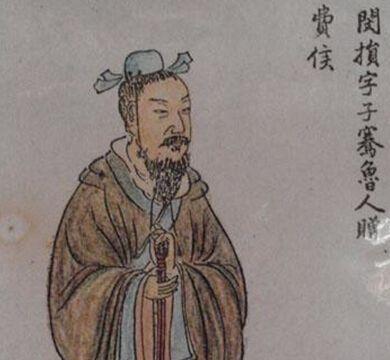 閔損字子騫魯人贈
費侯